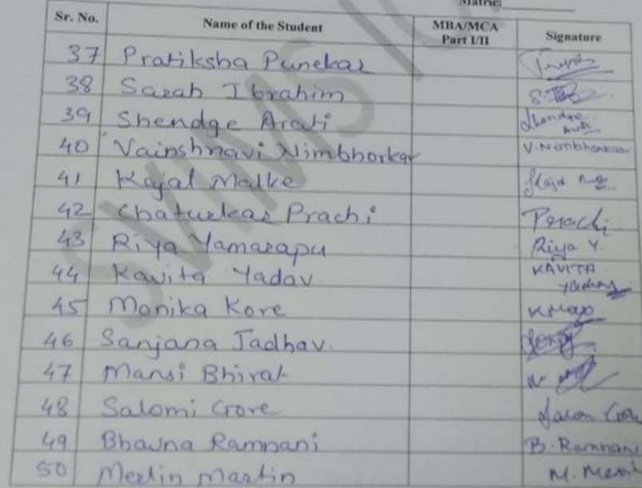 Matric:
Sr. No. Name of the Student MBA/MCA Part I/II Signature
37 Pratiksha Punekar
38 Sarah Ibrahim
39 Shendge Arati
40 Vainshnavi Nimbhorkar V. Nimbhorkar
41 Kajal Malke
42 Chaturkar Prachi Prachi
43 Riya Yamarapu Riya Y.
44 Kavita Yadav KAVITA Yadav
45 Monika Kore
46 Sanjana Jadhav.
47 Mansi Bhirat
48 Salomi Gore
49 Bhavna Ramnani B. Ramnani
50 Merlin Martin
SVIMS